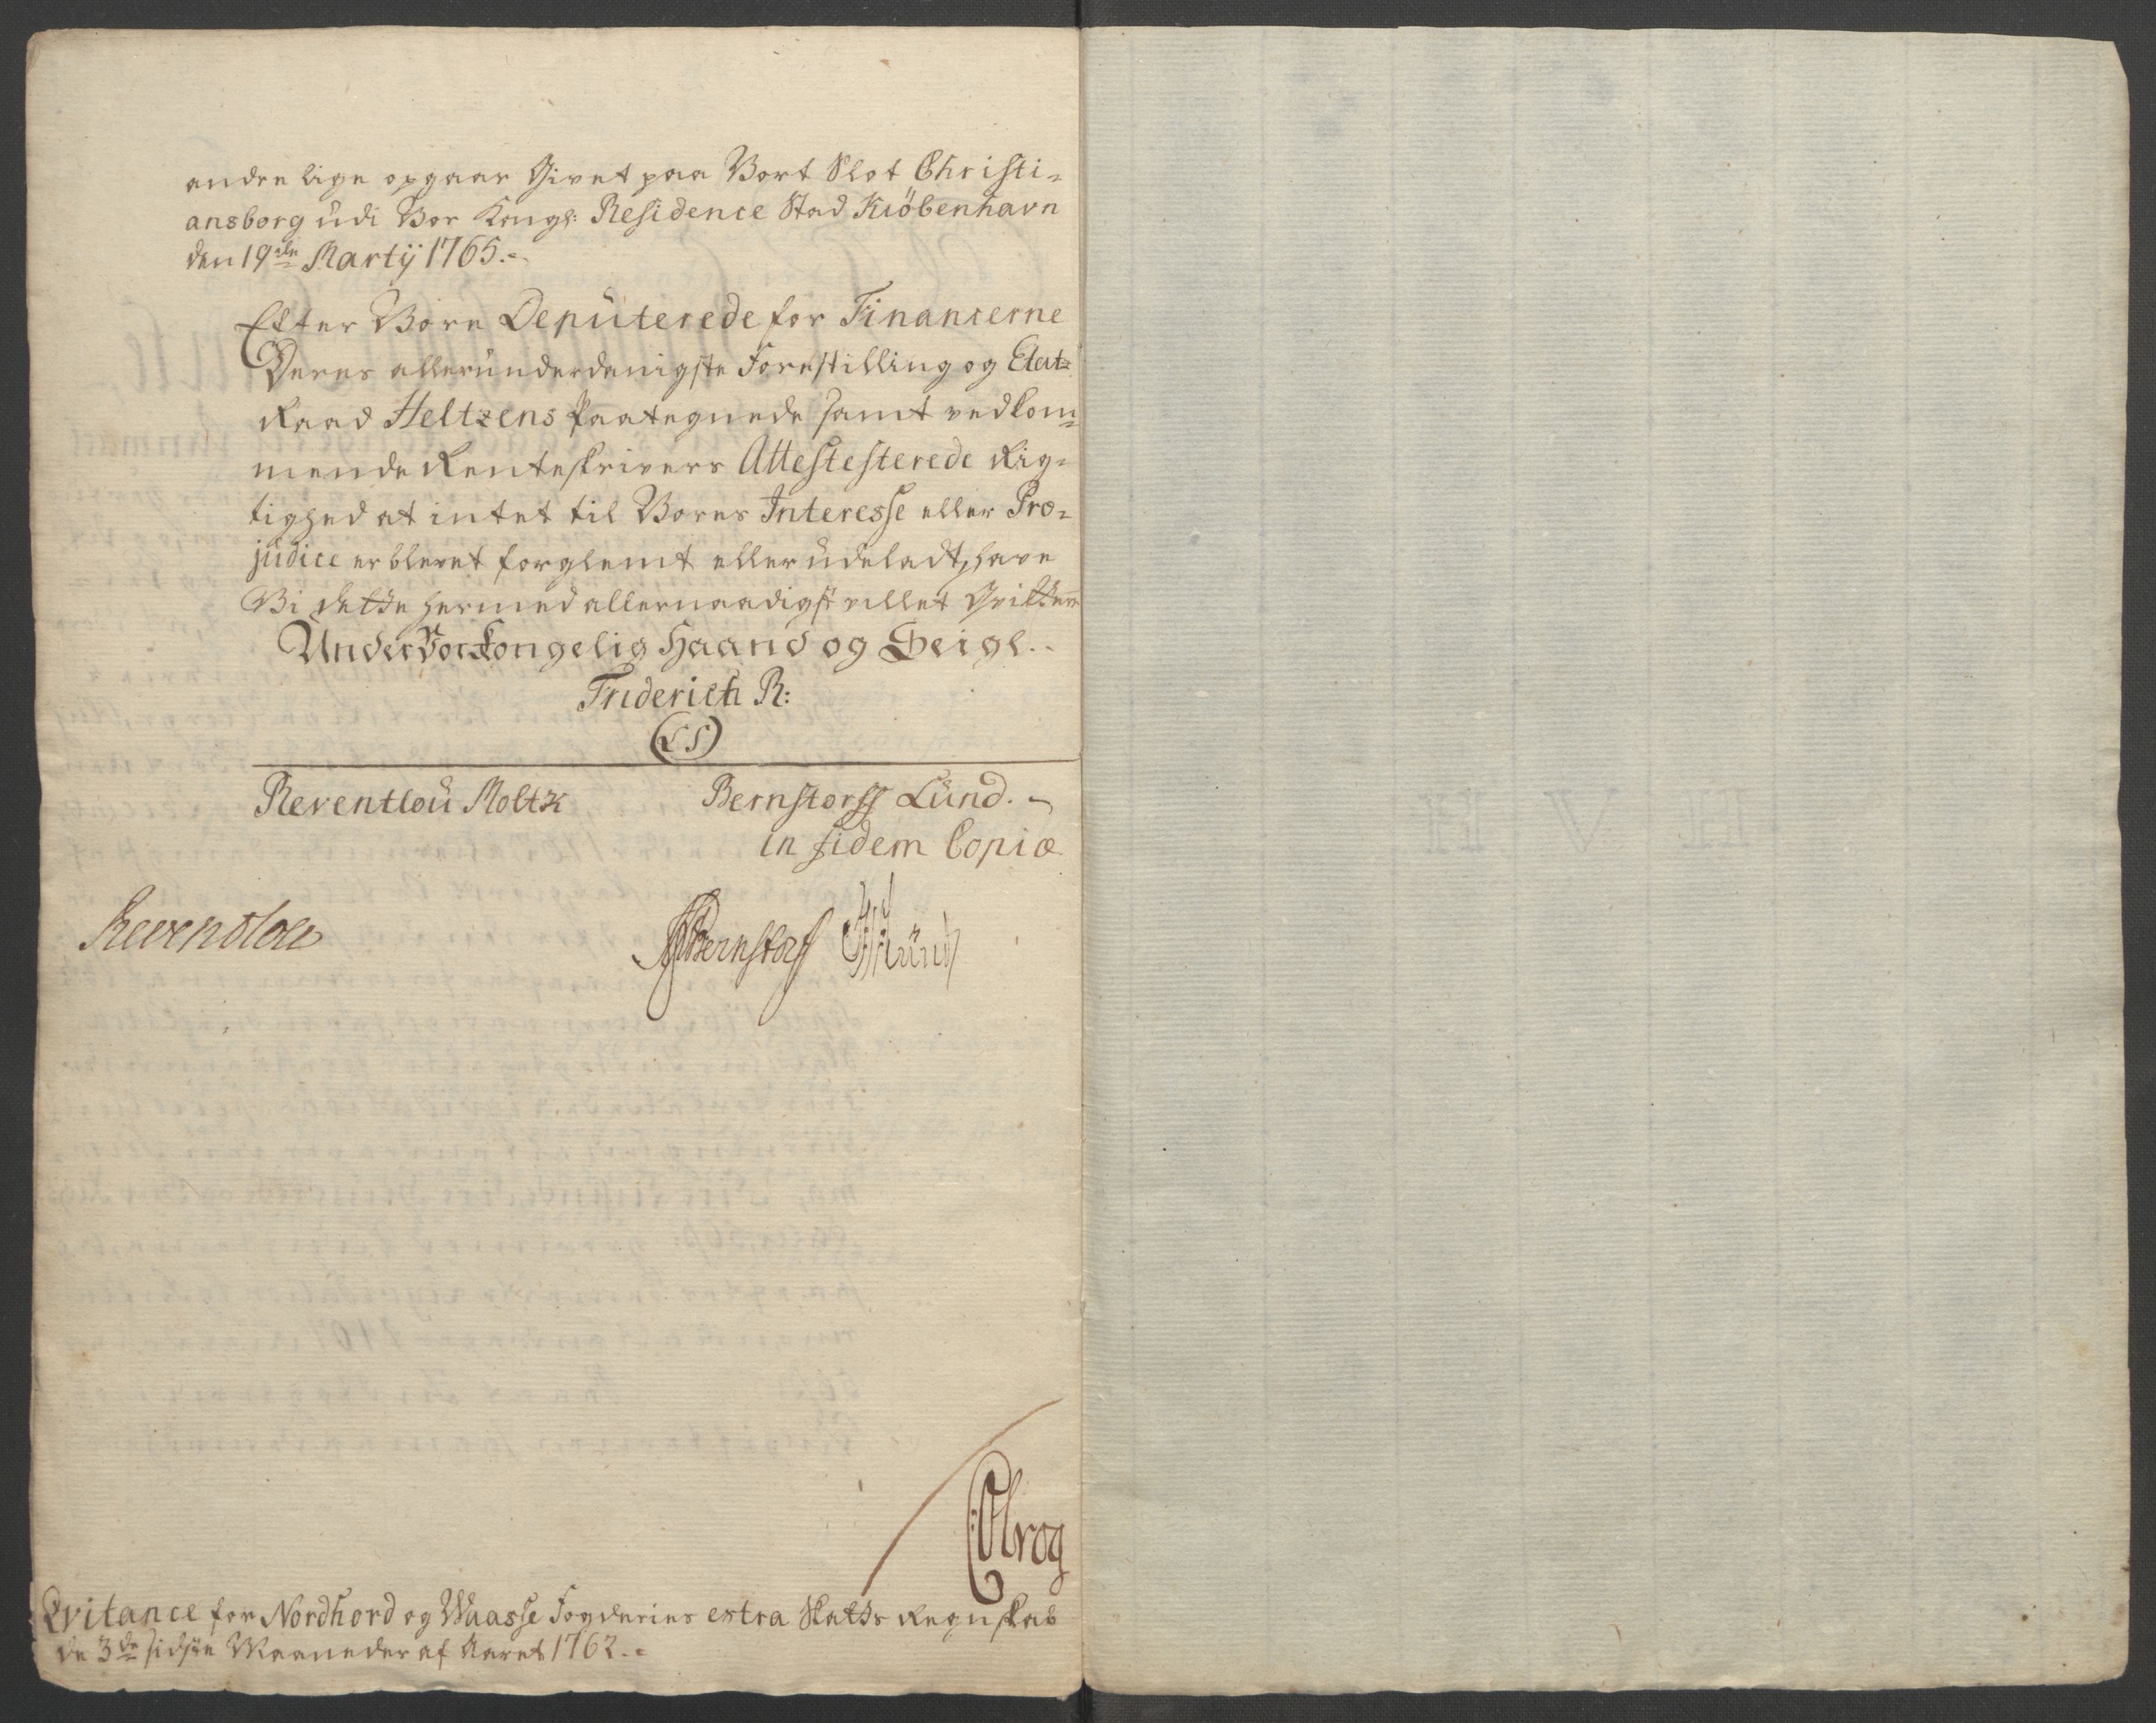 andre lige opgaar Givet paa Vort Slot Christi=
ansborg udi Vor Kongl: Residence Stad Kiöbenhavn
den 19de Martÿ 1765.
Efter Vore Deputerede for Financerne
Deres allerunderdanigste Forestilling og Etat=
Raad Heltzens Paategnede samt vedkom=
mende Renteskrivers Attestesterede Rig=
tighed at intet til Vores Interesse eller Præ=
judice er blevet forglemt eller udeladt, have
Vi dette hermed allernaadigst villet Qvittere
Under Vor Kongelig Haand og Seigl.
Friderich R:
(LS)
Reventlou Moltk Bernstorff Lund.
in fidem Copiæ
Reventlou Bernstorf
Qvitance for Nordhord og Waasse Fogderies extra Skatts Regnskab
de 3de sidste Maaneder af Aaret 1762.